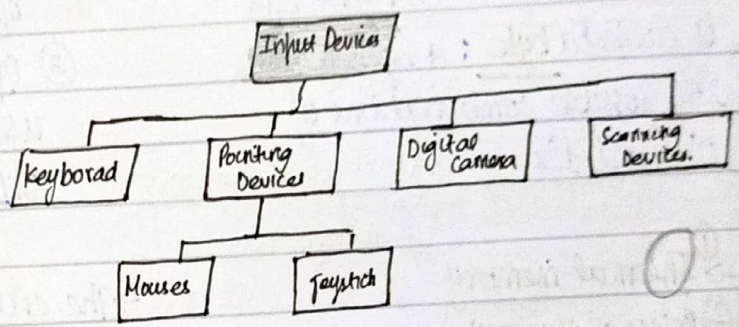 Input Devices
Keyborad
Pointing
Devices
Digital
Camera
Scanning
Devices.
Mouses
Joystich